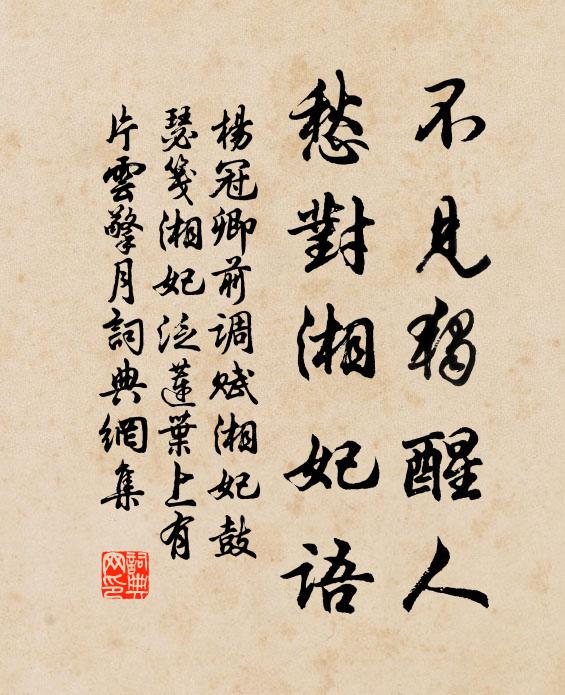 不見獨醒人
愁對湘妃語
楊冠卿前调賦湘妃鼓
瑟箋湘妃泛蓮葉上有
片雲擎月詞典網集
詞典網印